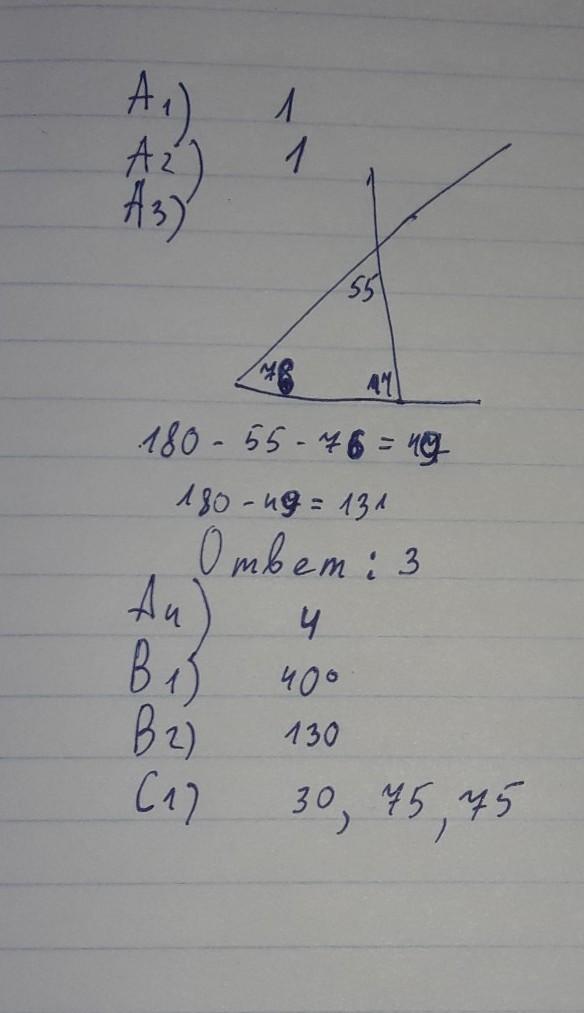 A1) 1
A2) 1
A3)
55
76
180 - 55 - 76 = 49
180 - 49 = 131
Ответ: 3
A4) 4
B1) 40°
B2) 130
C1) 30, 75, 75